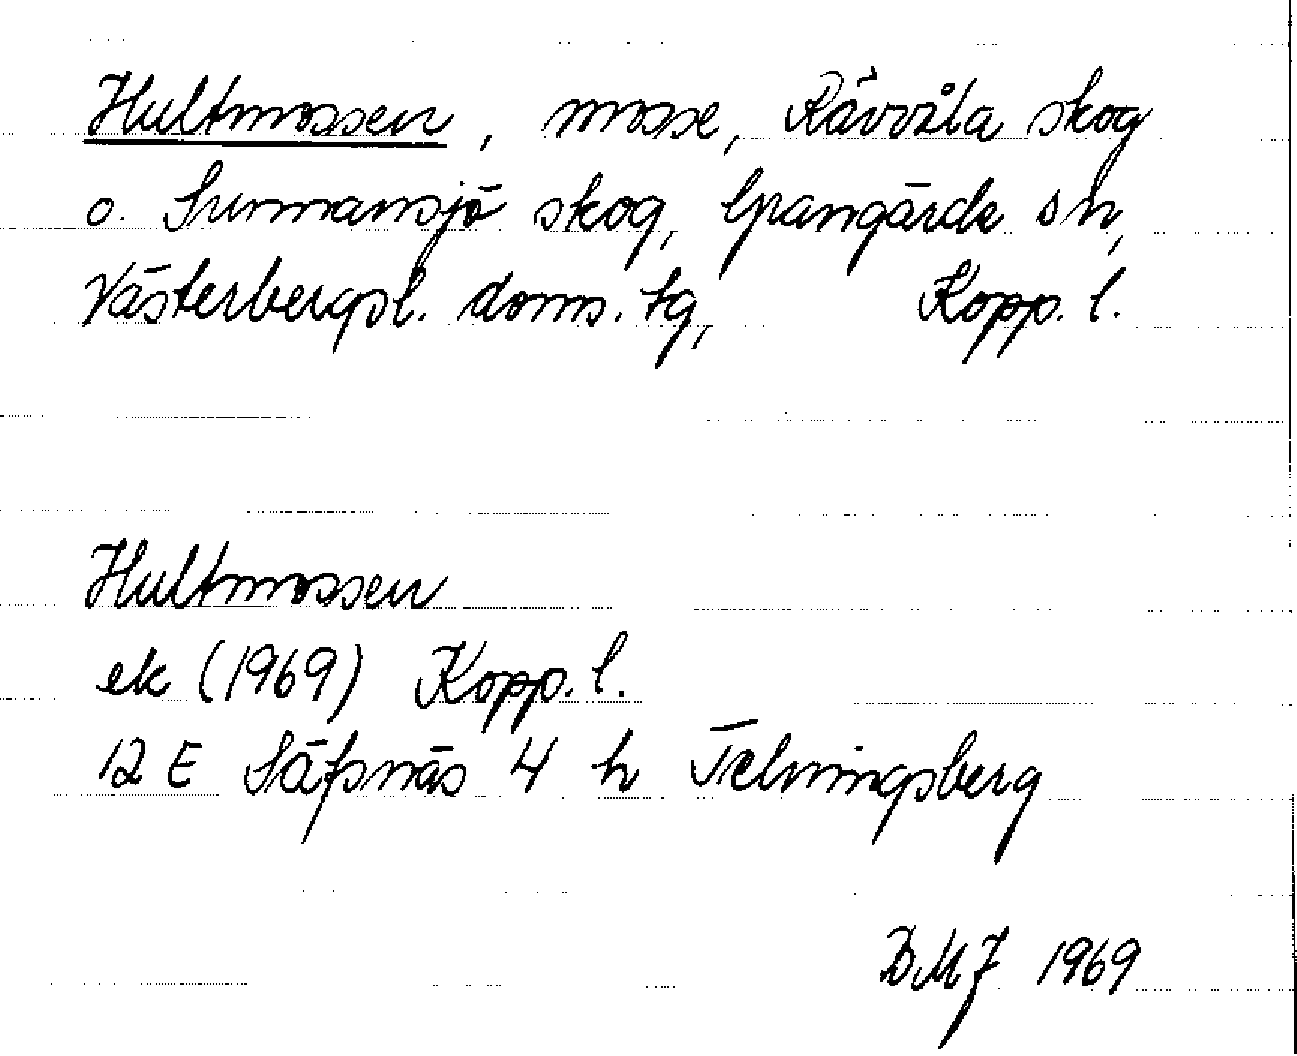 Hultmossen, mosse, Rävvåla skog
o. Sunnansjö skog, Grangärde sn,
Västerbergsl. doms. tg, Kopp. l.
Hultmossen
ek (1969) Kopp. l.
12 E Säfsnäs 4 h Telningsberg
BMJ 1969